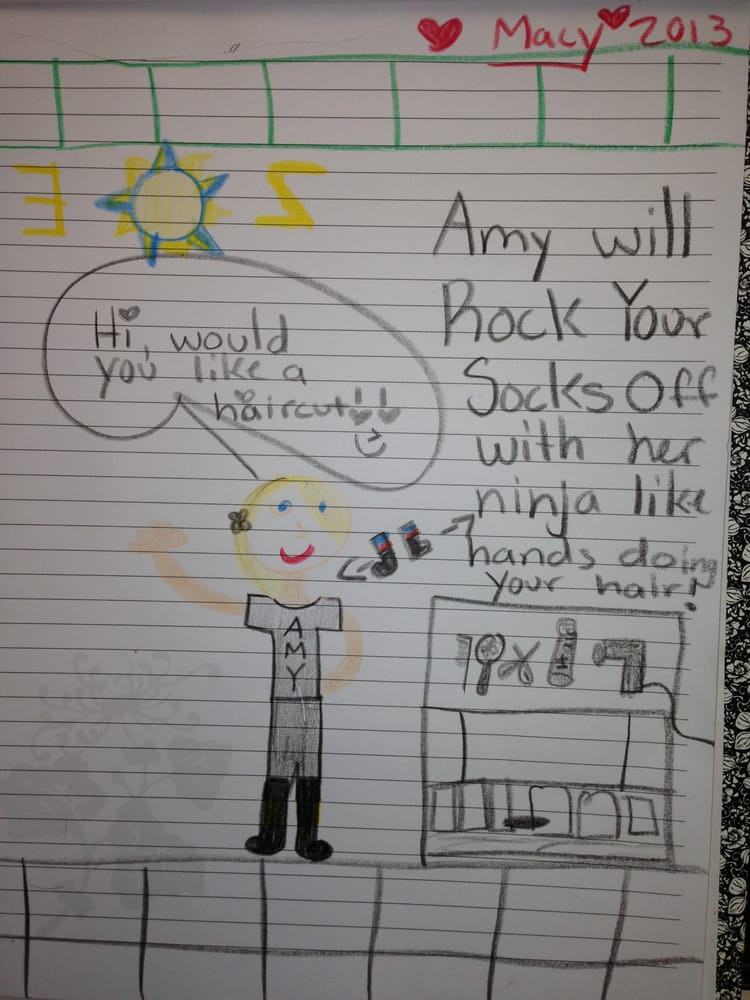 Macy 2013
Amy will
Rock Your
Socks Off
with her
ninja like
hands doing
your hair!
Hi, would
you like a
haircut!!
AMY